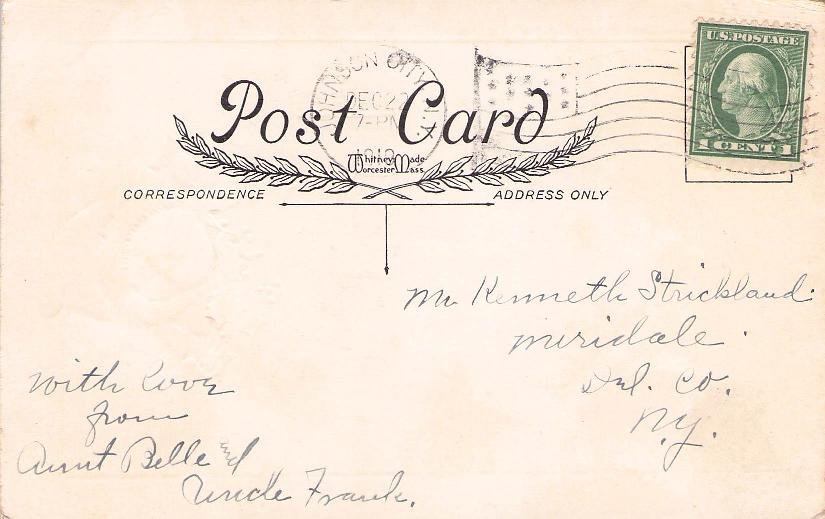 U.S. POSTAGE
1 CENT 1
JOHNSON CITY, N.Y.
DEC 22
7-PM
Post Card
Whitney Made
Worcester Mass.
CORRESPONDENCE
ADDRESS ONLY
Mr Kenneth Strickland.
Meridale.
Del. Co.
N.Y.
With Love
from
Aunt Belle and
Uncle Frank.